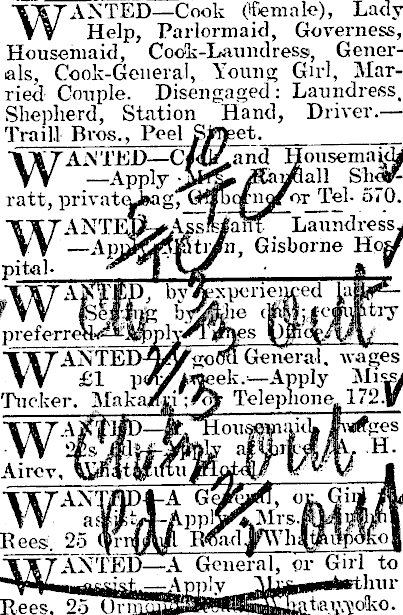 WANTED—Cook (female), Lady
Help, Parlormaid, Governess,
Housemaid, Cook-Laundress, Gener-
als, Cook-General, Young Girl, Mar-
ried Couple. Disengaged: Laundress,
Shepherd, Station Hand, Driver.—
Traill Bros., Peel Street.
WANTED—Cook and Housemaid
—Apply Mrs. Randall Sher-
ratt, private bag, Gisborne, or Tel. 570.
WANTED—Assistant Laundress
—Apply Matron, Gisborne Hos-
pital.
WANTED, by experienced lady—
Sewing by the day; country
preferred.—Apply Times Office.
WANTED—A good General, wages
£1 per week.—Apply Miss
Tucker, Makauri; or Telephone 172.
WANTED—A Housemaid, wages
Apply at once, A. H.
Airey, Whatatutu Hotel.
WANTED—A General, or Girl to
assist.—Apply Mrs. Arthur
Rees, 25 Ormond Road, Whataupoko.
WANTED—A General, or Girl to
assist.—Apply Mrs. Arthur
Rees, 25 Ormond Road, Whataupoko.
out
out
Pd
out